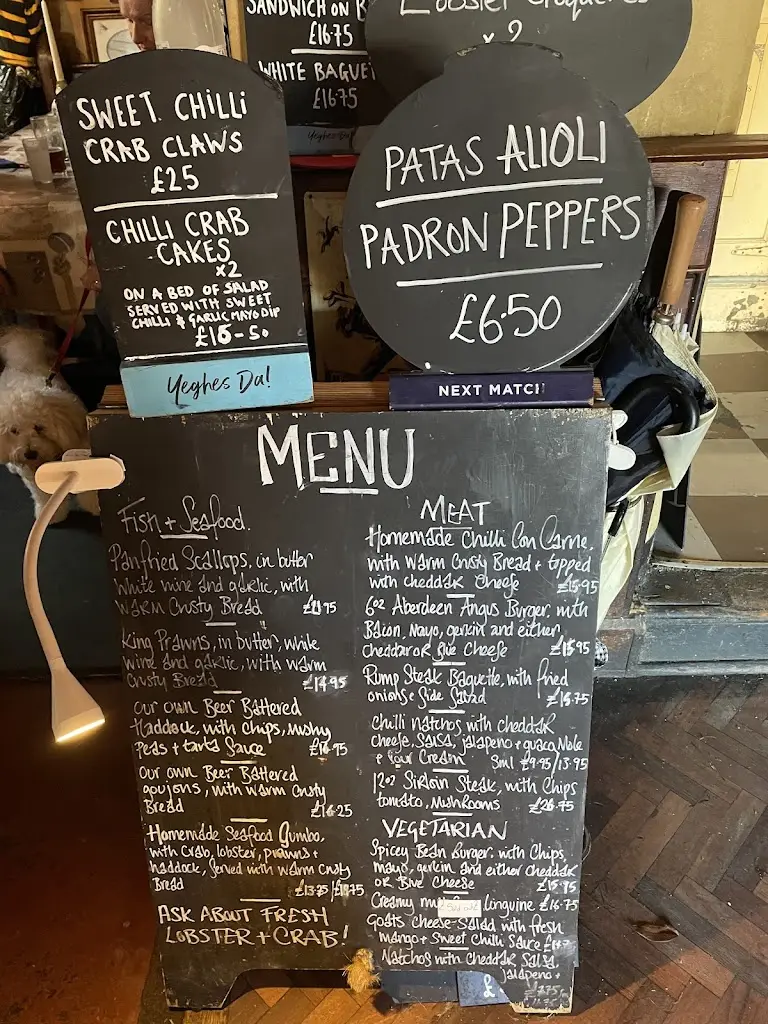 SANDWICH ON B
£16.75
WHITE BAGUET
£16.75
Lobster Croquettes
x 2
SWEET CHILLI
CRAB CLAWS
£25
CHILLI CRAB
CAKES
x2
ON A BED OF SALAD
SERVED WITH SWEET
CHILLI & GARLIC MAYO DIP
£16-50
Yeghes Da!
PATAS ALIOLI
PADRON PEPPERS
£6.50
NEXT MATCH
MENU
Fish + Seafood
Panfried Scallops, in butter
white wine and garlic, with
warm Crusty Bread
King Prawns, in butter, while
wine and garlic, with warm
Crusty Bread £14.95
our own Beer Battered
Haddock, with chips, mushy
Peas + tarta Sauce £16.95
our own Beer Battered
goujons, with warm Crusty
Bread £16.25
Homemade Seafood Gumbo,
with Crab, lobster, prawns +
haddock, Served with warm Crusty
Bread
ASK ABOUT FRESH
LOBSTER + CRAB!
MEAT
Homemade Chilli Con Carne,
with warm Crusty Bread + topped
with cheddar cheese £15.95
6oz Aberdeen Angus Burger, with
Bacon, Mayo, gerkin and either
cheddar or Blue Cheese £15.95
Rump Steak Baguette, with fried
onions & Side Salad £16.75
Chilli natchos with cheddar
cheese, Salsa, jalapeno + guacamole
+ Sour Cream Sml £9.95/13.95
12oz Sirloin Steak, with Chips
tomato, mushrooms £26.75
VEGETARIAN
Spicey Bean Burger, with Chips,
mayo, gerkin and either cheddar
or Blue Cheese £15.95
Creamy linguine £16.75
Goats cheese-Salad with fresh
mango + Sweet Chilli Sauce
Natchos with Cheddar Salsa,
jalapeno +